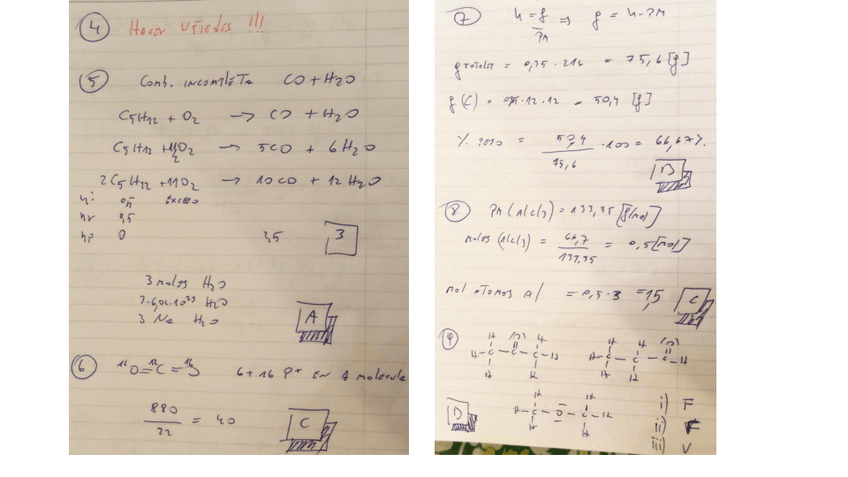 4 Hacer Ustedes !!!
5 Comb. incompleta CO + H2O
C5H12 + O2 → CO + H2O
C5H12 + 11/2 O2 → 5CO + 6H2O
2C5H12 + 11O2 → 10CO + 12H2O
ni: 0,5 exceso
nr 0,5
nf: 0
3 moles H2O
3·6,02·10²³ H2O
3 Na H2O
A
6
6 + 16 P+ en 1 molecula
880/22 = 40
C
7 n = g/PM ⇒ g = n·PM
g totales = 0,35 · 216 = 75,6 [g]
g(C) = 0,35·12·12 = 50,4 [g]
50,4/75,6 · 100 = 66,67%
8 = 133,35 [g/mol]
moles = 66,7/133,35 = 0,5 [mol]
= 0,5 · 3 = 1,5
C
9
H H H H
H - C - C - C - H H - C - C - C - H
H H H H
D
H - C - O - C - H
i) F
ii) F
iii) V